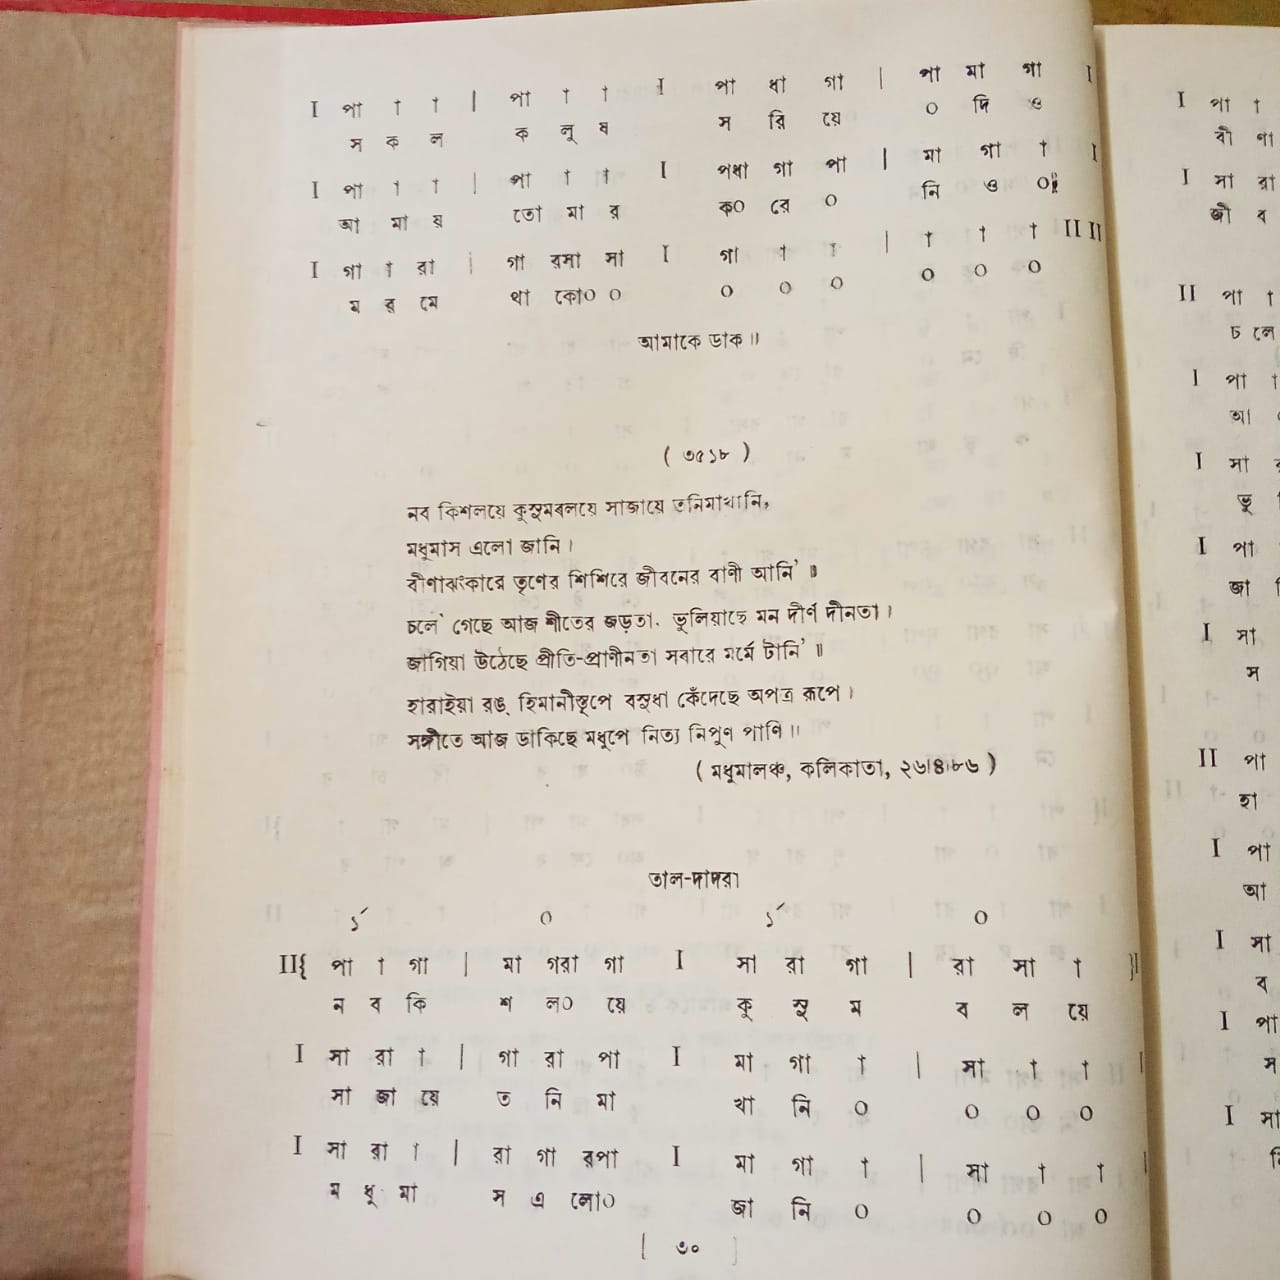 I পা া া | পা া া I পা ধা গা | পা মা গা I
স ক ল ক লু ষ স রি য়ে ০ দি ও
I পা া া | পা া া I পধা গা পা | মা গা া I
আ মা য় তো মা র ক০ রে ০ নি ও ০
I গা া রা | গা রসা সা I গা া া | া া া II II
ম র মে থা কো০ ০ ০ ০ ০ ০ ০ ০
আমাকে ডাক॥
( ৩৫১৮ )
নব কিশলয়ে কুসুমবলয়ে সাজায়ে তনিমাখানি,
মধুমাস এলো জানি।
বীণাঝংকারে তৃণের শিশিরে জীবনের বাণী আনি'॥
চলে' গেছে আজ শীতের জড়তা, ভুলিয়াছে মন দীর্ণ দীনতা।
জাগিয়া উঠেছে প্রীতি-প্রাণীনতা সবারে মর্মে টানি'॥
হারাইয়া রঙ্ হিমানীস্তূপে বসুধা কেঁদেছে অপত্র রূপে।
সঙ্গীতে আজ ডাকিছে মধুপে নিত্য নিপুণ পাণি॥
( মধুমালঞ্চ, কলিকাতা, ২৬।৪।৮৬ )
তাল-দাদরা
১´ ০ ১´ ০
II{ পা া গা | মা গরা গা I সা রা গা | রা সা া }I
ন ব কি শ ল০ য়ে কু সু ম ব ল য়ে
I সা রা া | গা রা পা I মা গা া | সা া া I
সা জা য়ে ত নি মা খা নি ০ ০ ০ ০
I সা রা া | রা গা রপা I মা গা া | সা া া I
ম ধু মা স এ লো০ জা নি ০ ০ ০ ০
[ ৩০ ]
I পা া
বী ণা
I সা রা
জী ব
II পা া
চ লে
I পা া
আ
I সা
ভু
I পা
জা
I সা
স
II পা
হা
I পা
আ
I সা
ব
I পা
স
I সা